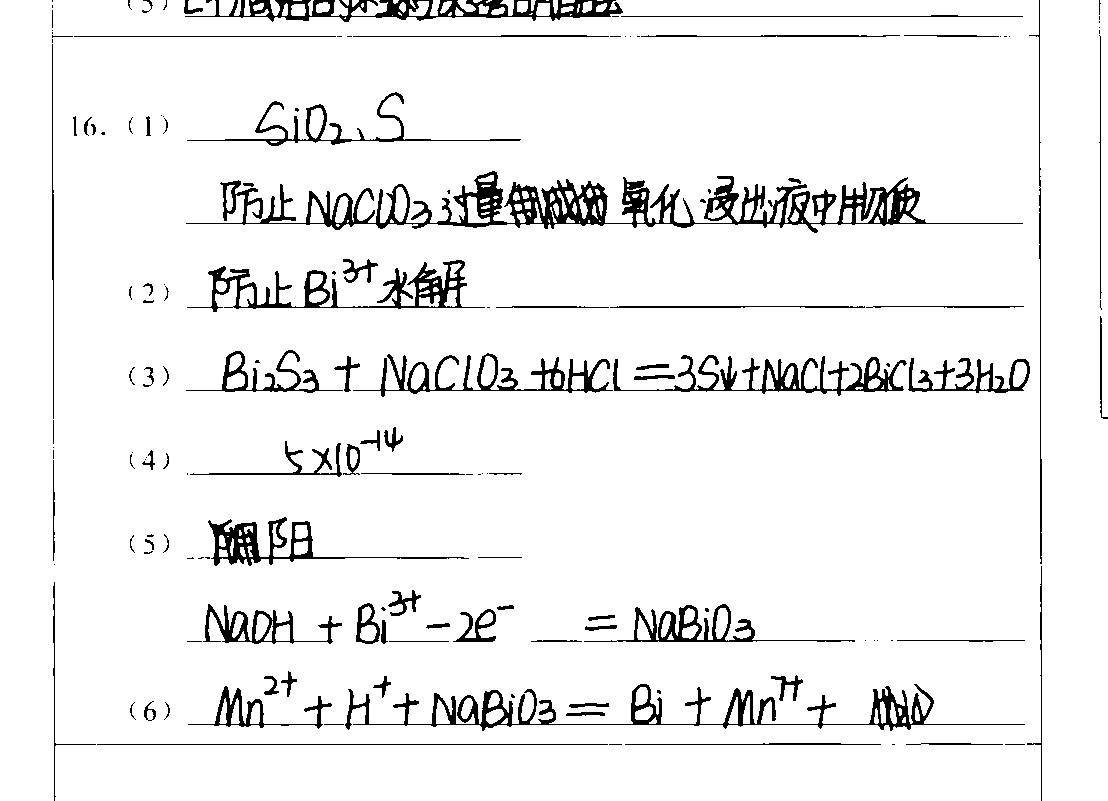 (5)
16.(1) SiO₂、S
防止NaClO₃过量 氧化浸出液中物质
(2) 防止Bi³⁺水解
(3) Bi₂S₃ + NaClO₃ +6HCl =3S↓+NaCl+2BiCl₃+3H₂O
(4) 5×10⁻¹⁴
(5) 阳
NaOH + Bi³⁺ -2e⁻ = NaBiO₃
(6) Mn²⁺ + H⁺ + NaBiO₃ = Bi + Mn⁷⁺ +